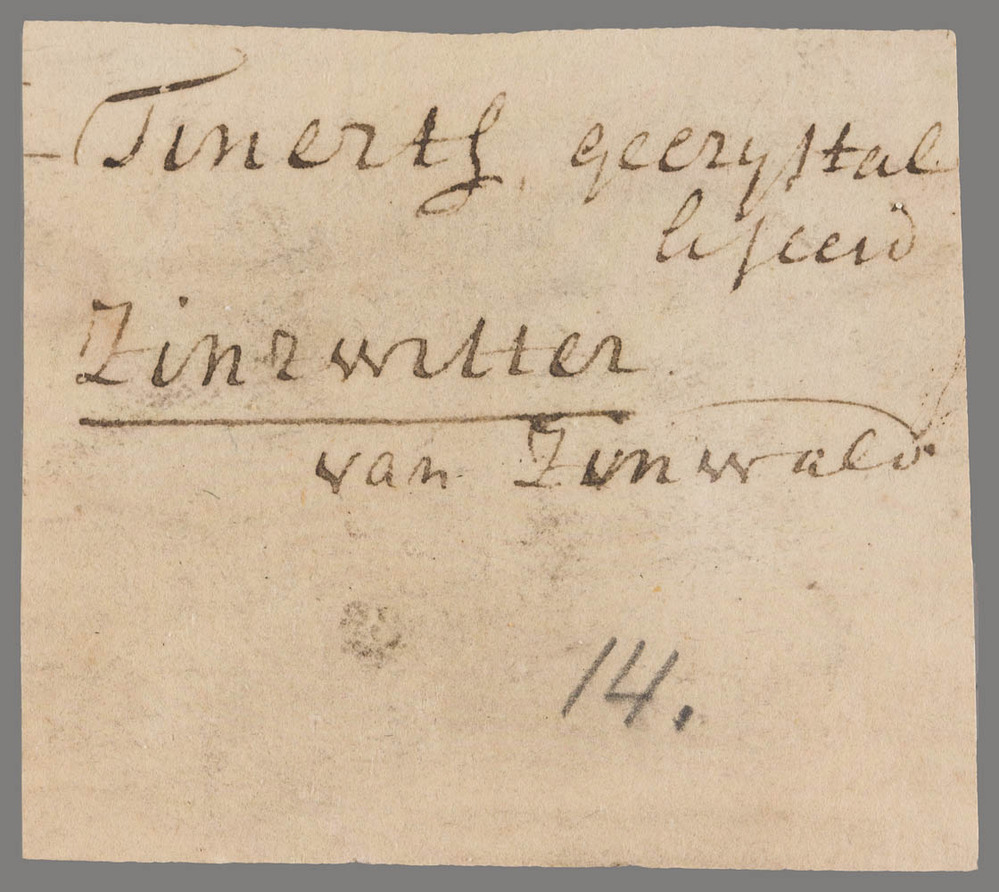 Tinerts, gecrystal
liseerd
Zinzwitter
van Zinwald.
14.